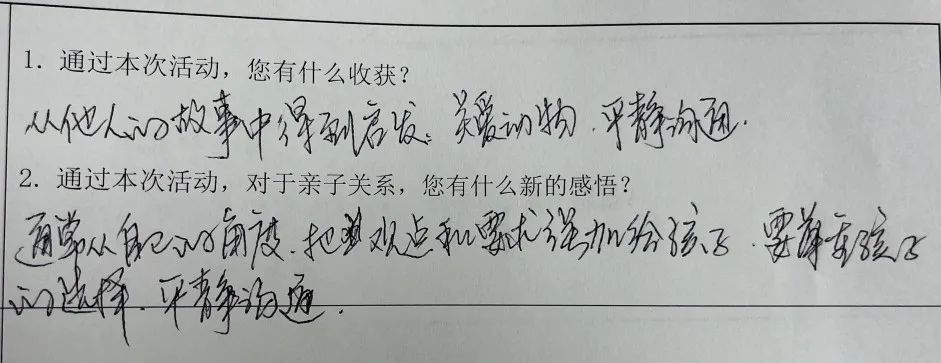 1. 通过本次活动，您有什么收获？
从他人的故事中得到启发：关爱动物．平静沟通．
2. 通过本次活动，对于亲子关系，您有什么新的感悟？
通常从自己的角度．把观点和要求强加给孩子．要尊重孩子
的选择．平静沟通．